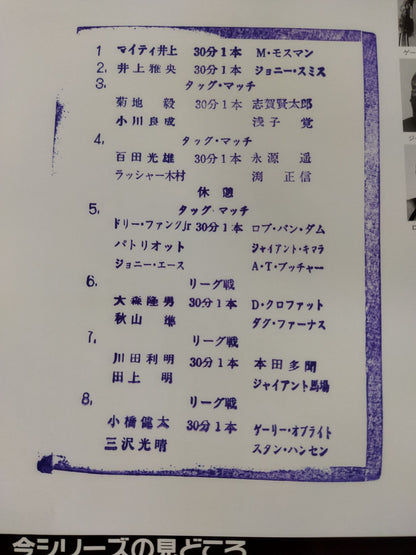 1 マイティ井上 30分1本 M・モスマン
2. 井上雅央 30分1本 ジョニー・スミス
3. タッグ・マッチ
菊地 毅 30分1本 志賀賢太郎
小川良成 浅子 覚
4. タッグ・マッチ
百田光雄 30分1本 永源 遥
ラッシャー木村 渕 正信
休憩
5. タッグ・マッチ
ドリー・ファンクJr 30分1本 ロブ・バン・ダム
パトリオット ジャイアント・キマラ
ジョニー・エース A・T・ブッチャー
6. リーグ戦
大森隆男 30分1本 D・クロファット
秋山 準 ダグ・ファーナス
7. リーグ戦
川田利明 30分1本 本田多聞
田上 明 ジャイアント馬場
8. リーグ戦
小橋健太 30分1本 ゲーリー・オブライト
三沢光晴 スタン・ハンセン
今シリーズの見どころ